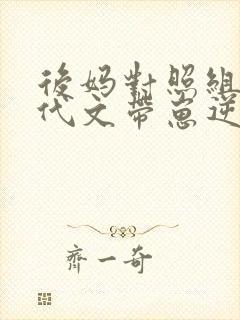 後妈對照組
代文帶崽逆
齊一奇